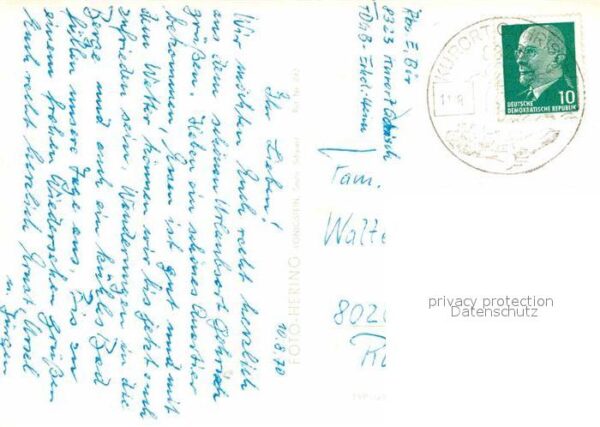 10.8.70
Ihr Lieben!
Wir möchten Euch recht herzlich
aus dem schönen Urlaubsort Gohrisch
grüßen. Haben ein schönes Quartier
bekommen, Essen ist gut und mit
dem Wetter können wir bis jetzt auch
zufrieden sein. Wanderungen in die
Berge und auch ein kühles Bad
füllen unsere Tage aus. Bis zu
einem frohen Wiedersehen grüßen
Euch recht herzlich Ernst Ursel
u. Jürgen
FOTO-HERING KÖNIGSTEIN
Abs. E. Bär
8323 Kurort Gohrisch
FDGB-Erhol.-Heim
KURORT GOHRISCH
10
DEUTSCHE
DEMOKRATISCHE REPUBLIK
Fam.
Walte
802
privacy protection
Datenschutz